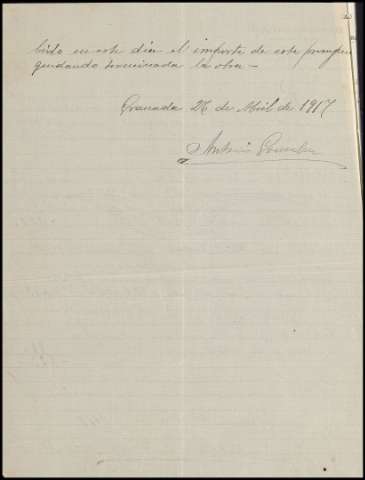 bido en este dia el importe de este presupu
quedando terminada la obra —
Granada 26 de Abril de 1917
Antonio